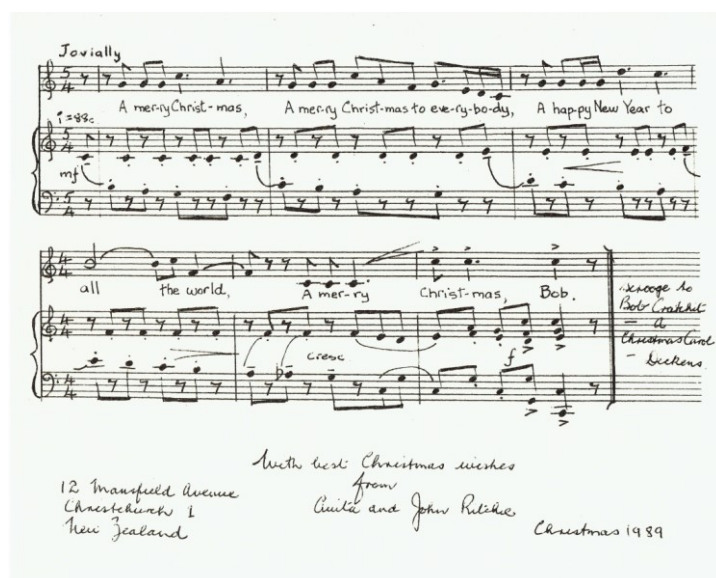 Jovially
5 4
A mer-ry Christ-mas, A mer-ry Christ-mas to eve-ry-bo-dy, A hap-py New Year to
♩=88c
5 4
mf
5 4
4 4
all the world, A mer-ry Christ-mas, Bob.
4 4
cresc
f
4 4
Scrooge to
Bob Cratchit
— a
Christmas Carol
— Dickens
With best Christmas wishes
from
Anita and John Ritchie
12 Mansfield Avenue
Christchurch 1
New Zealand
Christmas 1989